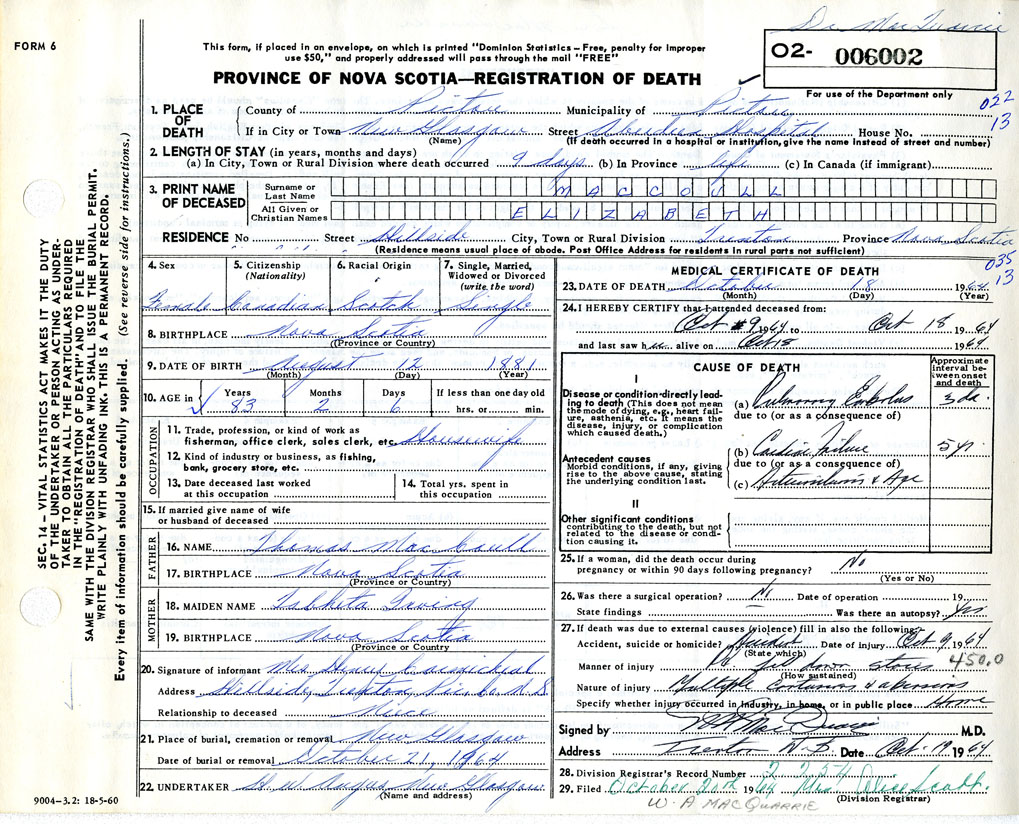 Dr. MacQuarrie
FORM 6
This form, if placed in an envelope, on which is printed "Dominion Statistics – Free, penalty for improper
use $50," and properly addressed will pass through the mail "FREE"
PROVINCE OF NOVA SCOTIA—REGISTRATION OF DEATH
02- 006002
For use of the Department only
022
13
1. PLACE OF DEATH
County of Pictou Municipality of Pictou
If in City or Town New Glasgow Street Aberdeen Hospital House No.
(Name) (If death occurred in a hospital or institution, give the name instead of street and number)
2. LENGTH OF STAY (in years, months and days)
(a) In City, Town or Rural Division where death occurred 9 days (b) In Province life (c) In Canada (if immigrant)
3. PRINT NAME OF DECEASED
Surname or Last Name MACCOULL
All Given or Christian Names ELIZABETH
RESIDENCE No Street Hillside City, Town or Rural Division Trenton Province Nova Scotia
(Residence means usual place of abode. Post Office Address for residents in rural parts not sufficient)
035
13
4. Sex
Female
5. Citizenship
(Nationality)
Canadian
6. Racial Origin
Scotch
7. Single, Married,
Widowed or Divorced
(write the word)
Single
8. BIRTHPLACE Nova Scotia
(Province or Country)
9. DATE OF BIRTH August 12 1881
(Month) (Day) (Year)
10. AGE in
Years Months Days If less than one day old
83 2 6 hrs. or min.
OCCUPATION
11. Trade, profession, or kind of work as
fisherman, office clerk, sales clerk, etc. Housewife
12. Kind of industry or business, as fishing,
bank, grocery store, etc.
13. Date deceased last worked
at this occupation
14. Total yrs. spent in
this occupation
15. If married give name of wife
or husband of deceased
FATHER
16. NAME Thomas MacCoull
17. BIRTHPLACE Nova Scotia
(Province or Country)
MOTHER
18. MAIDEN NAME Irving
19. BIRTHPLACE Nova Scotia
(Province or Country)
20. Signature of informant Mrs Henry Carmichael
Address Hillside, Trenton, Pic. Co. N.S
Relationship to deceased Niece
21. Place of burial, cremation or removal New Glasgow
Date of burial or removal October 21, 1964
22. UNDERTAKER H. W. Angus New Glasgow
(Name and address)
9004-3.2: 18-5-60
MEDICAL CERTIFICATE OF DEATH
23. DATE OF DEATH October 18 1964
(Month) (Day) (Year)
24. I HEREBY CERTIFY that I attended deceased from:
Oct 9 1964 to Oct 18 1964
and last saw h alive on Oct 18 1964
CAUSE OF DEATH
Approximate interval between onset and death
I
Disease or condition directly leading to death (This does not mean the mode of dying, e.g., heart failure, asthenia, etc. It means the disease, injury, or complication which caused death.)
(a) Pulmonary Embolus 3 da.
due to (or as a consequence of)
Antecedent causes
Morbid conditions, if any, giving rise to the above cause, stating the underlying condition last.
(b) Cardiac Failure 5 yr.
due to (or as a consequence of)
(c) & Age
II
Other significant conditions
contributing to the death, but not related to the disease or condition causing it.
25. If a woman, did the death occur during
pregnancy or within 90 days following pregnancy? No
(Yes or No)
26. Was there a surgical operation? No Date of operation 19
State findings Was there an autopsy?
27. If death was due to external causes (violence) fill in also the following:
Accident, suicide or homicide? Date of injury Oct 9 1964
(State which)
450.0
Manner of injury fell down stairs
(How sustained)
Nature of injury Multiple Contusions & abrasions
Specify whether injury occurred in industry, in home, or in public place Home
Signed by MacQuarrie M.D.
Address Trenton N.S. Date Oct. 19 1964
28. Division Registrar's Record Number 2254
29. Filed October 20th 1964 Mrs. Alice Scott
(Division Registrar)
W. A MACQUARRIE
SEC. 14 – VITAL STATISTICS ACT MAKES IT THE DUTY
OF THE UNDERTAKER OR PERSON ACTING AS UNDERTAKER
TO OBTAIN ALL THE PARTICULARS REQUIRED
IN THE "REGISTRATION OF DEATH" AND TO FILE THE
SAME WITH THE DIVISION REGISTRAR WHO SHALL ISSUE THE BURIAL PERMIT.
WRITE PLAINLY WITH UNFADING INK. THIS IS A PERMANENT RECORD.
Every item of information should be carefully supplied. (See reverse side for instructions.)